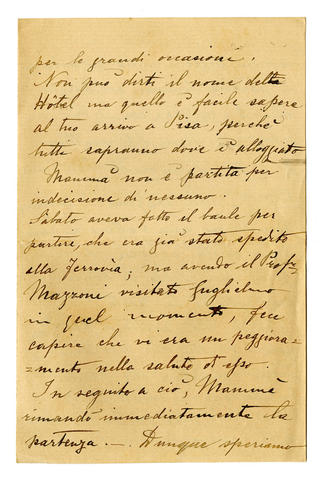 per le grandi occasioni.
Non può dirti il nome dell
Hôtel ma quello è facile sapere
al tuo arrivo a Pisa, perchè
tutti sapranno dove è alloggiato
Mammà non è partita per
indecisione di nessuno
Sabato aveva fatto il baule per
partire, che era già stato spedito
alla Ferrovia; ma avendo il Prof.
Mazzoni visitato Guglielmo
in quel momento, fece
capire che vi era un peggiora=
=mento nella salute d'esso.
In seguito a ciò, Mammà
rimandò immediatamente la
partenza. —. Dunque speriamo